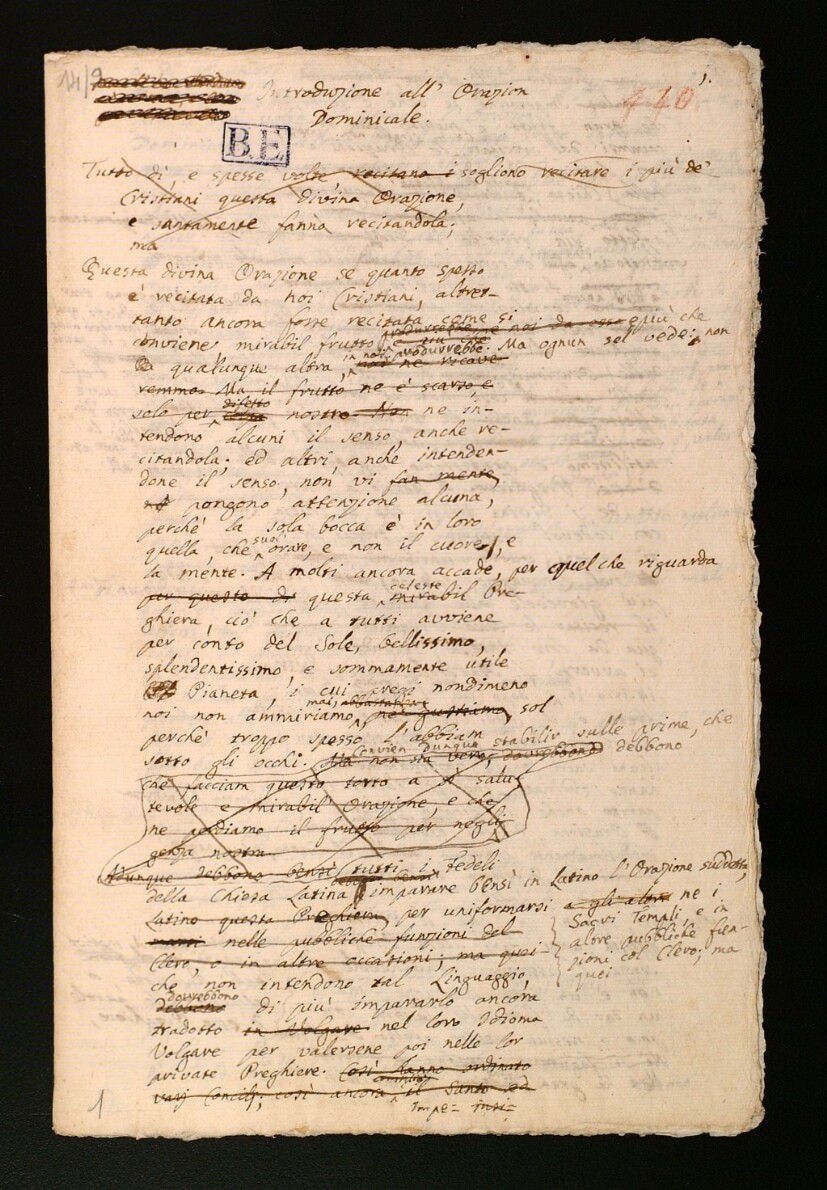 14/9
Introduzione all' Orazion
440
1.
Dominicale.
B.E
Tutto dì, e spesse volte recitano i sogliono recitare i più de'
Cristiani questa divina Orazione,
e santamente fanno recitandola;
ma
Questa divina Orazione se quanto spesso
è recitata da noi Cristiani, altret-
tanto ancora fosse recitata come si
conviene, mirabil frutto produrrebbe e più che
in noi produrrebbe. Ma ognun sel vede: non
qualunque altra, noi ne ricave
remmo. Ma il frutto ne è scarso, e
solo per difetto colpa nostro. Non ne in-
tendono alcuni il senso, anche re-
citandola; ed altri, anche intenden-
done il senso, non vi fan mente,
nè pongono attenzione alcuna,
perchè la sola bocca è in loro
quella, che suol orare, e non il cuore, e
la mente. A molti ancora accade, per quel che riguarda
per questo di questa celeste mirabil Pre-
ghiera, ciò che a tutti avviene
per conto del Sole, bellissimo,
splendentissimo, e sommamente utile
Pianeta, i cui pregi nondimeno
noi non ammiriamo mai abbastanza, nè gustiamo, sol
perchè troppo spesso l'abbiam
sotto gli occhi. Ma non sta bene, Convien dunque stabilir sulle prime, che
dovrebbono debbono
che facciam questo torto a sì salu-
tevole e mirabil Orazione, e che
ne perdiamo il frutto per negli-
genza nostra
Adunque debbono bensì tutti i Fedeli
della Chiesa Latina imparare bensì in Latino l'Orazione suddetta,
Latino questa Preghiera, per uniformarsi
a gli altri ne i
Sacri Templi, e in
altre pubbliche fun-
zioni col Clero; ma
quei
nelle pubbliche funzioni del
Clero, o in altre occasioni; ma quei
che non intendono tal Linguaggio,
dovrebbono
debbono di più impararlo ancora
tradotto in Volgare nel loro Idioma
Volgare per valersene poi nelle lor
private Preghiere. Così hanno ordinato
varj Concilj; così ancora il Santo ed
1